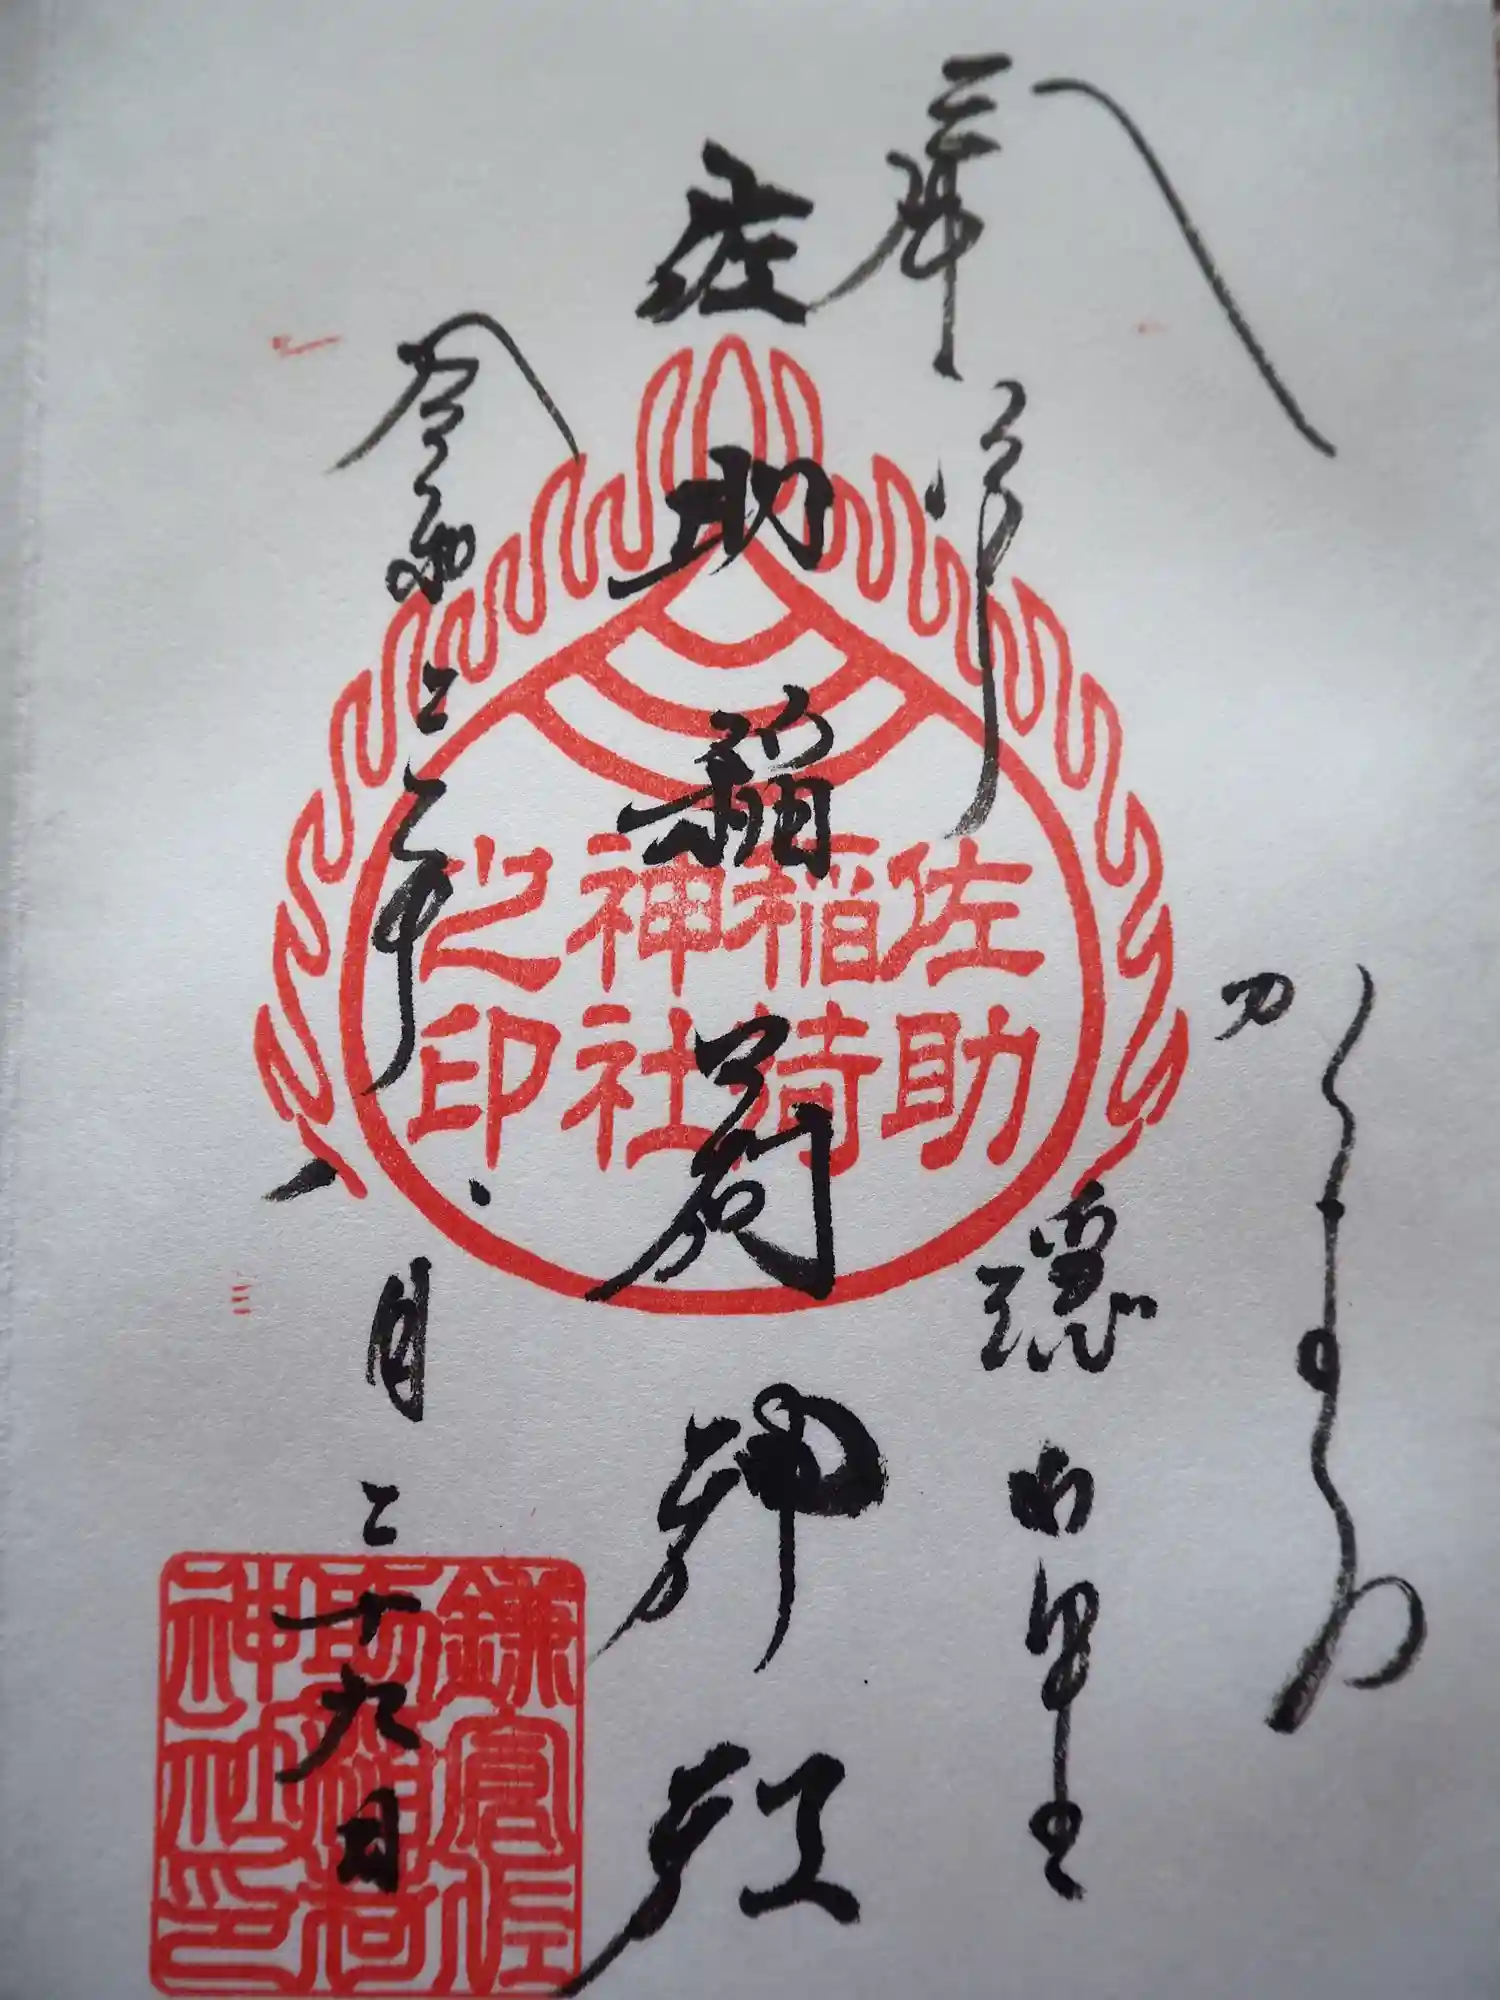 奉拝
かまくら
隠れ里
佐助稲荷神社
令和二年八月二十九日
佐助
稲荷
神社
之印
鎌倉佐
助稲荷
神社印